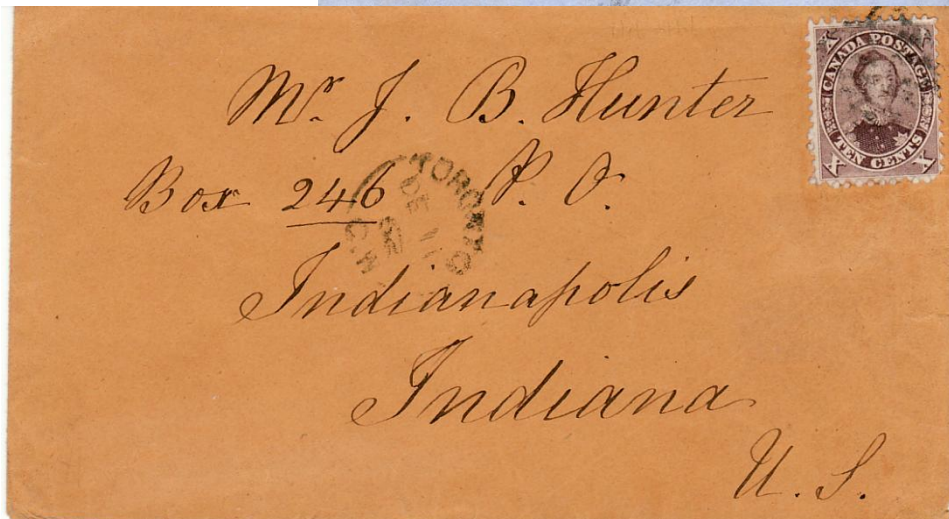 CANADA POSTAGE
X X
TEN CENTS
X X
Mr. J. B. Hunter
Box 246 P. O.
TORONTO
DE
C.W
Indianapolis
Indiana
U. S.